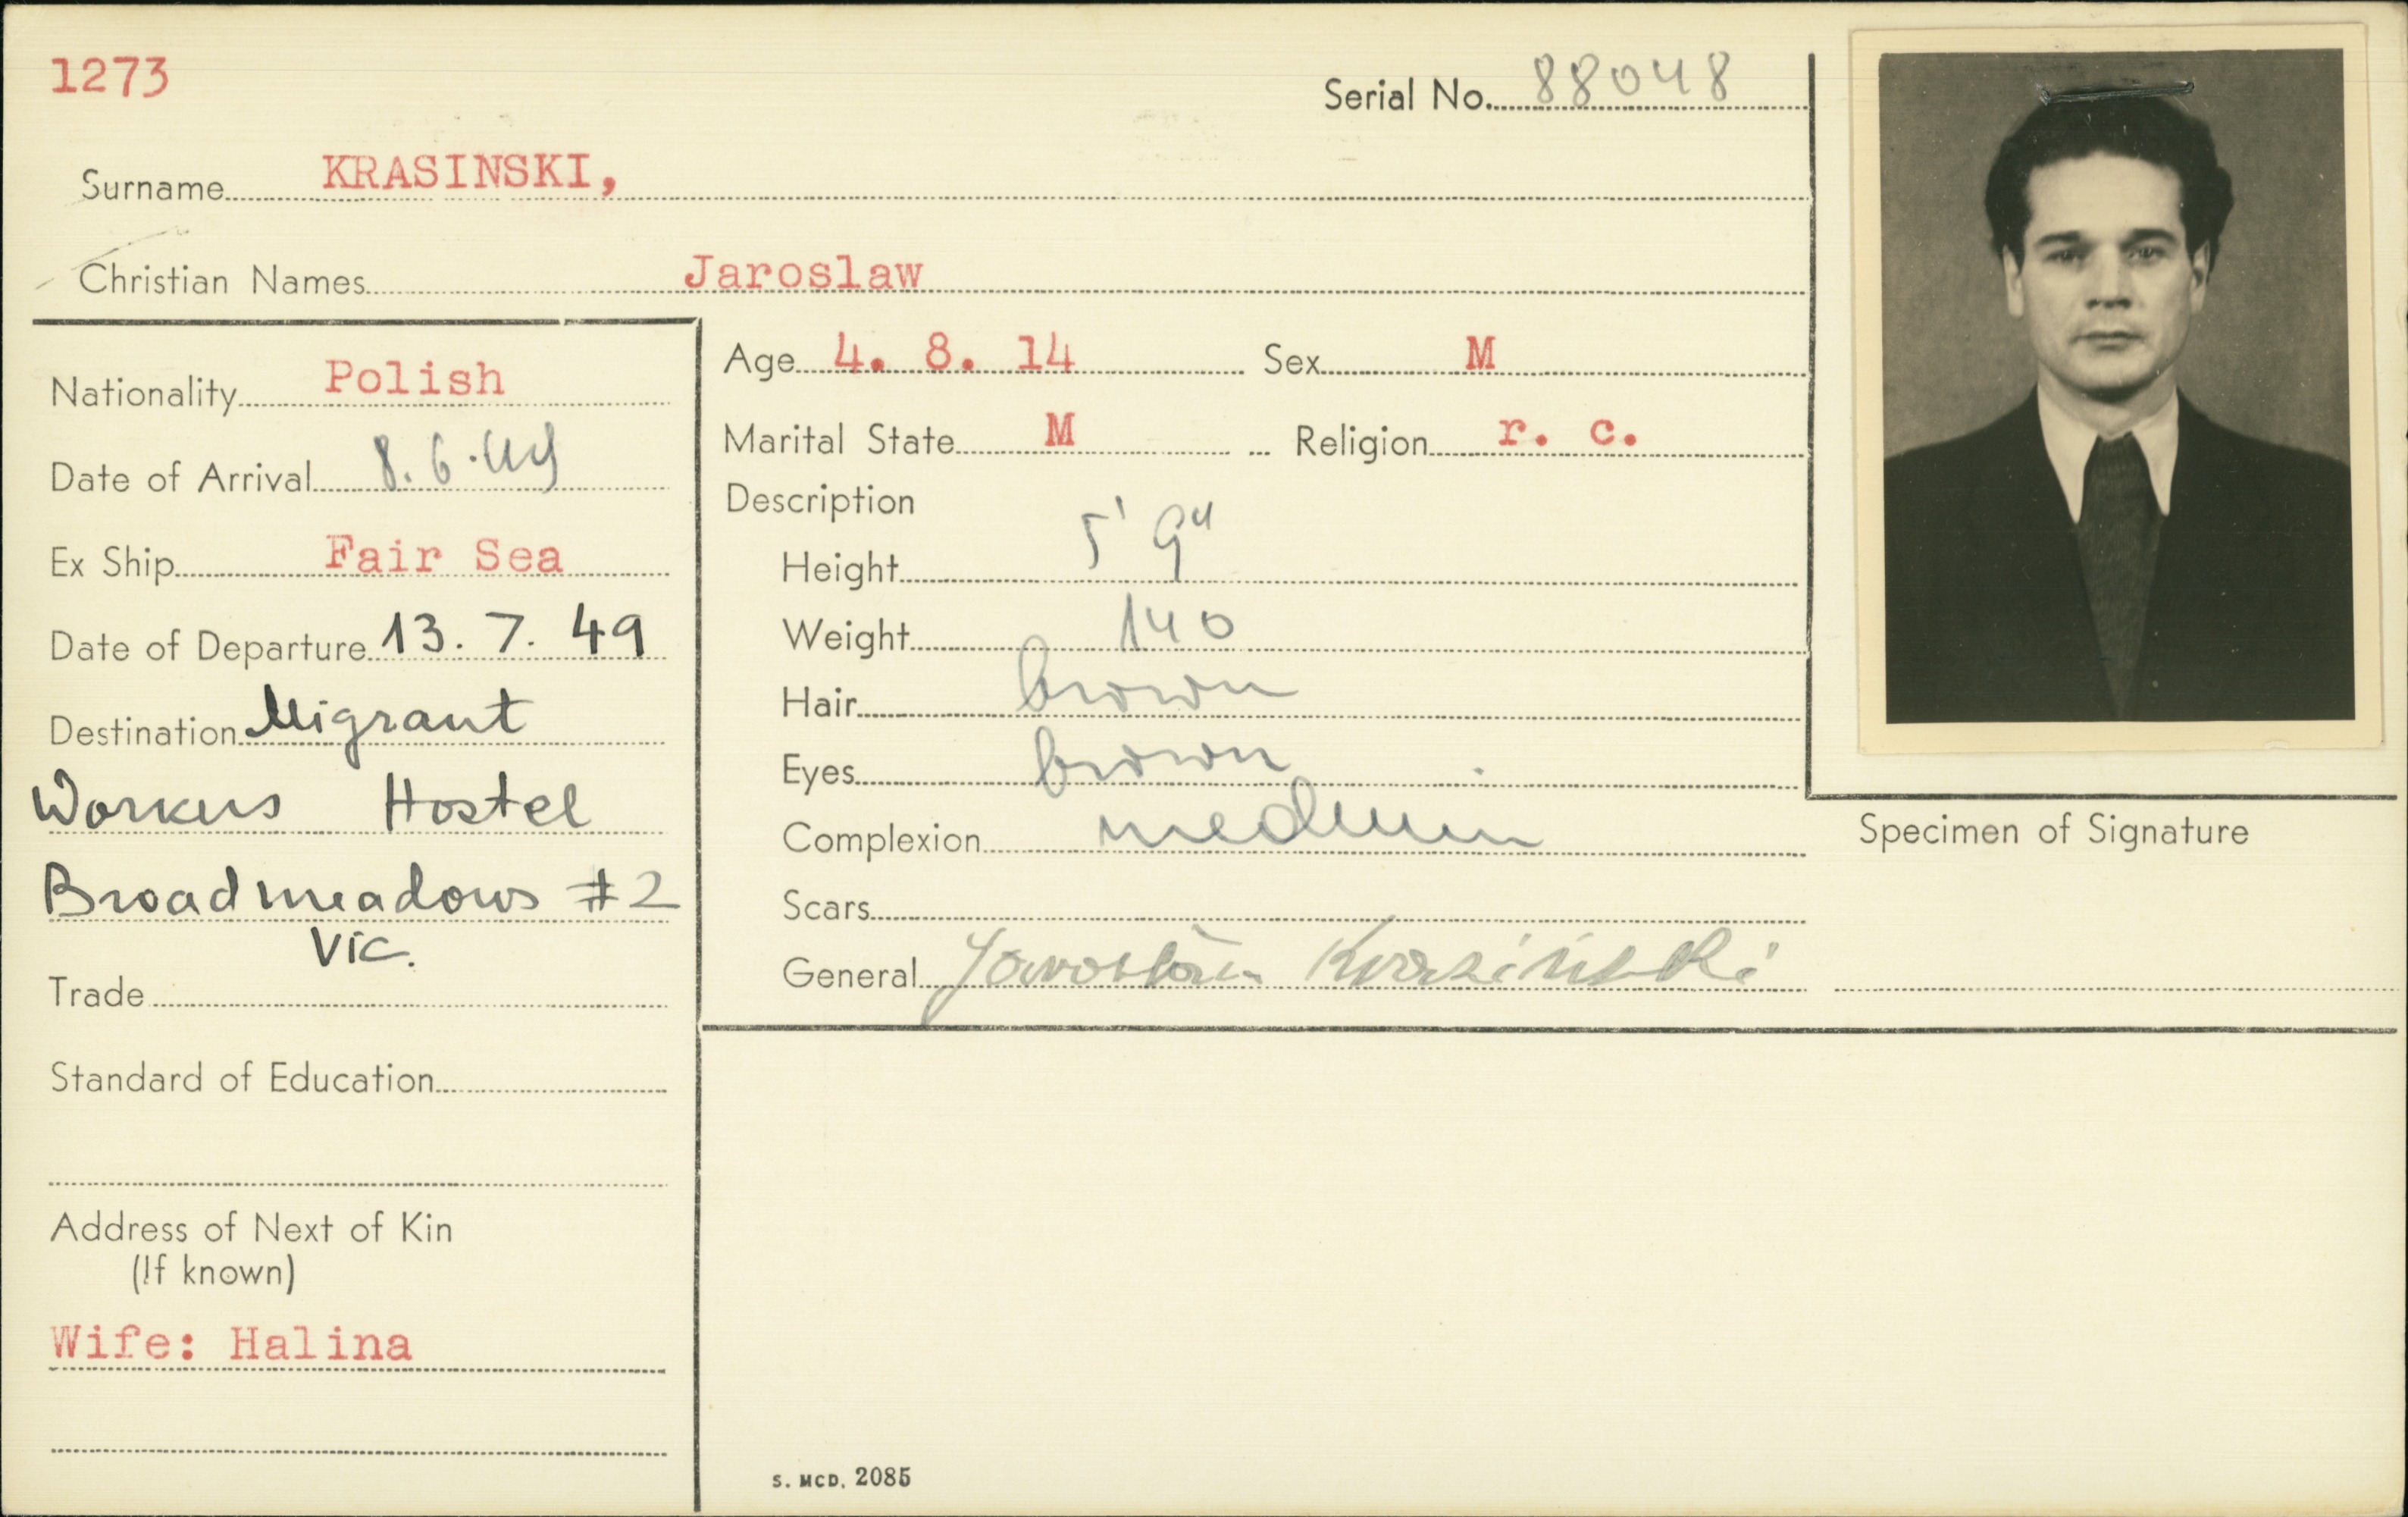 1273
Serial No. 88048
Surname KRASINSKI,
Christian Names Jaroslaw
Nationality Polish
Date of Arrival 8.6.49
Ex Ship Fair Sea
Date of Departure 13. 7. 49
Destination Migrant
Workers Hostel
Broadmeadows #2
Vic.
Trade
Standard of Education
Address of Next of Kin
(If known)
Wife: Halina
Age 4. 8. 14 Sex M
Marital State M Religion r. c.
Description
Height 5' 9"
Weight 140
Hair brown
Eyes brown
Complexion medium
Scars
General Jarosław Krasiński
Specimen of Signature
S. MCD. 2085